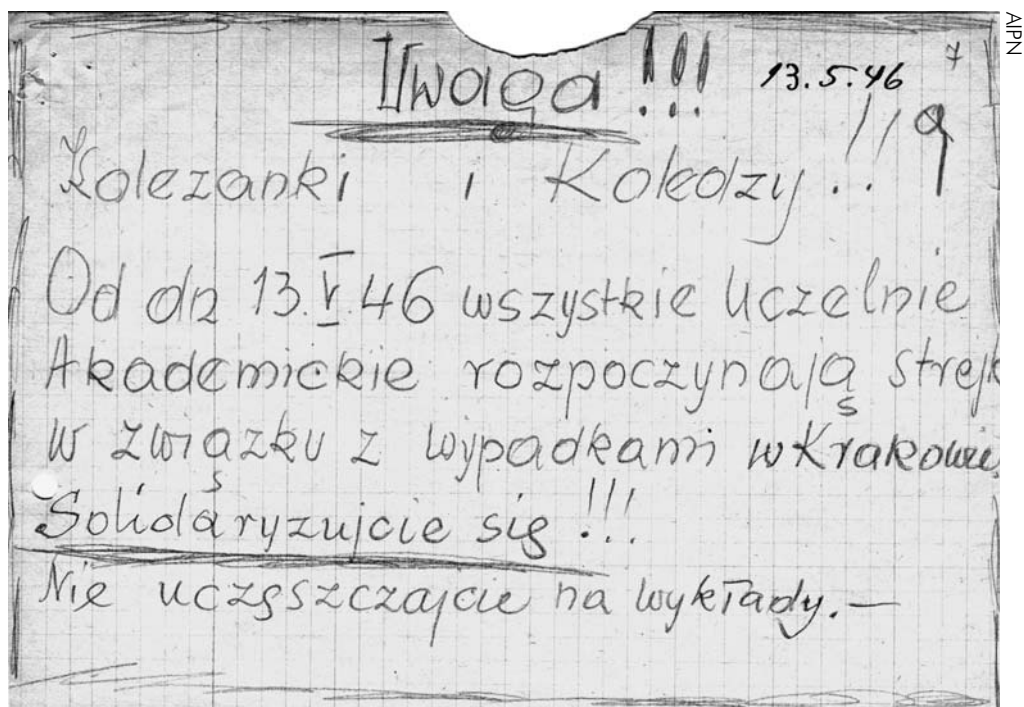 AIPN
7
Uwaga !!! 13.5.46
9
Koleżanki i Koledzy..!!
Od dn 13.V.46 wszystkie Uczelnie
Akademickie rozpoczynają strejk
w związku z wypadkami w Krakowie.
Solidaryzujcie się !!!
Nie uczęszczajcie na wykłady.—